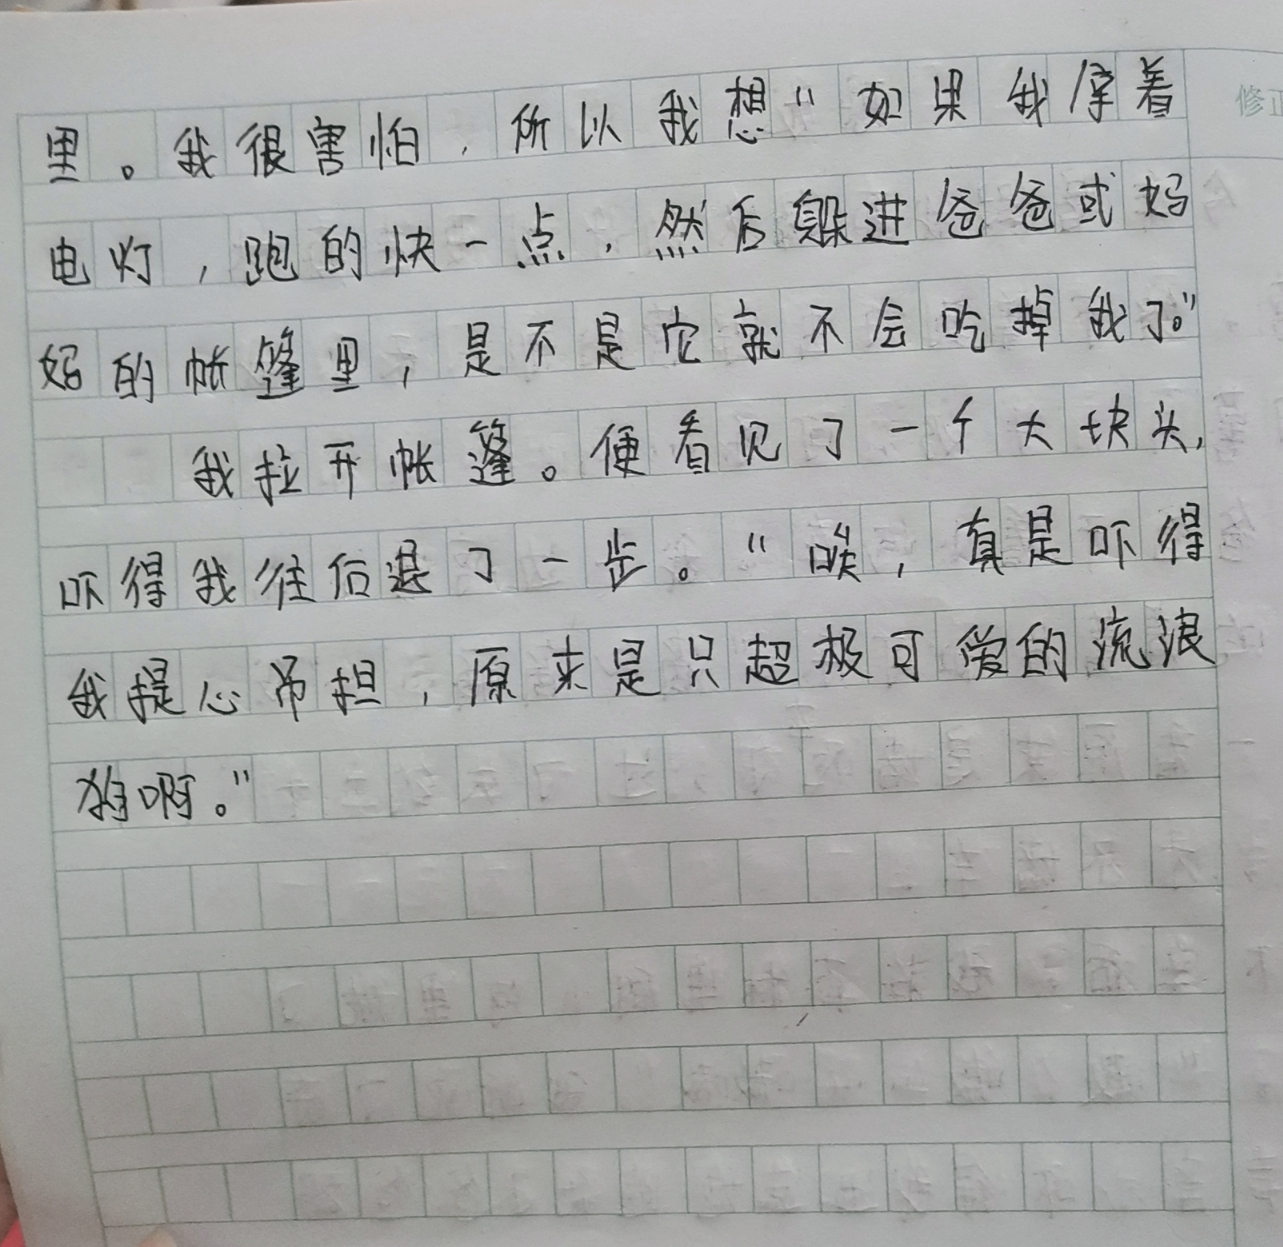 里。我很害怕，所以我想“如果我拿着
电灯，跑的快一点，然后躲进爸爸或妈
妈的帐篷里，是不是它就不会吃掉我了。”
我拉开帐篷。便看见了一个大块头，
吓得我往后退了一步。“唉，真是吓得
我提心吊担，原来是只超极可爱的流浪
狗啊。”
修正